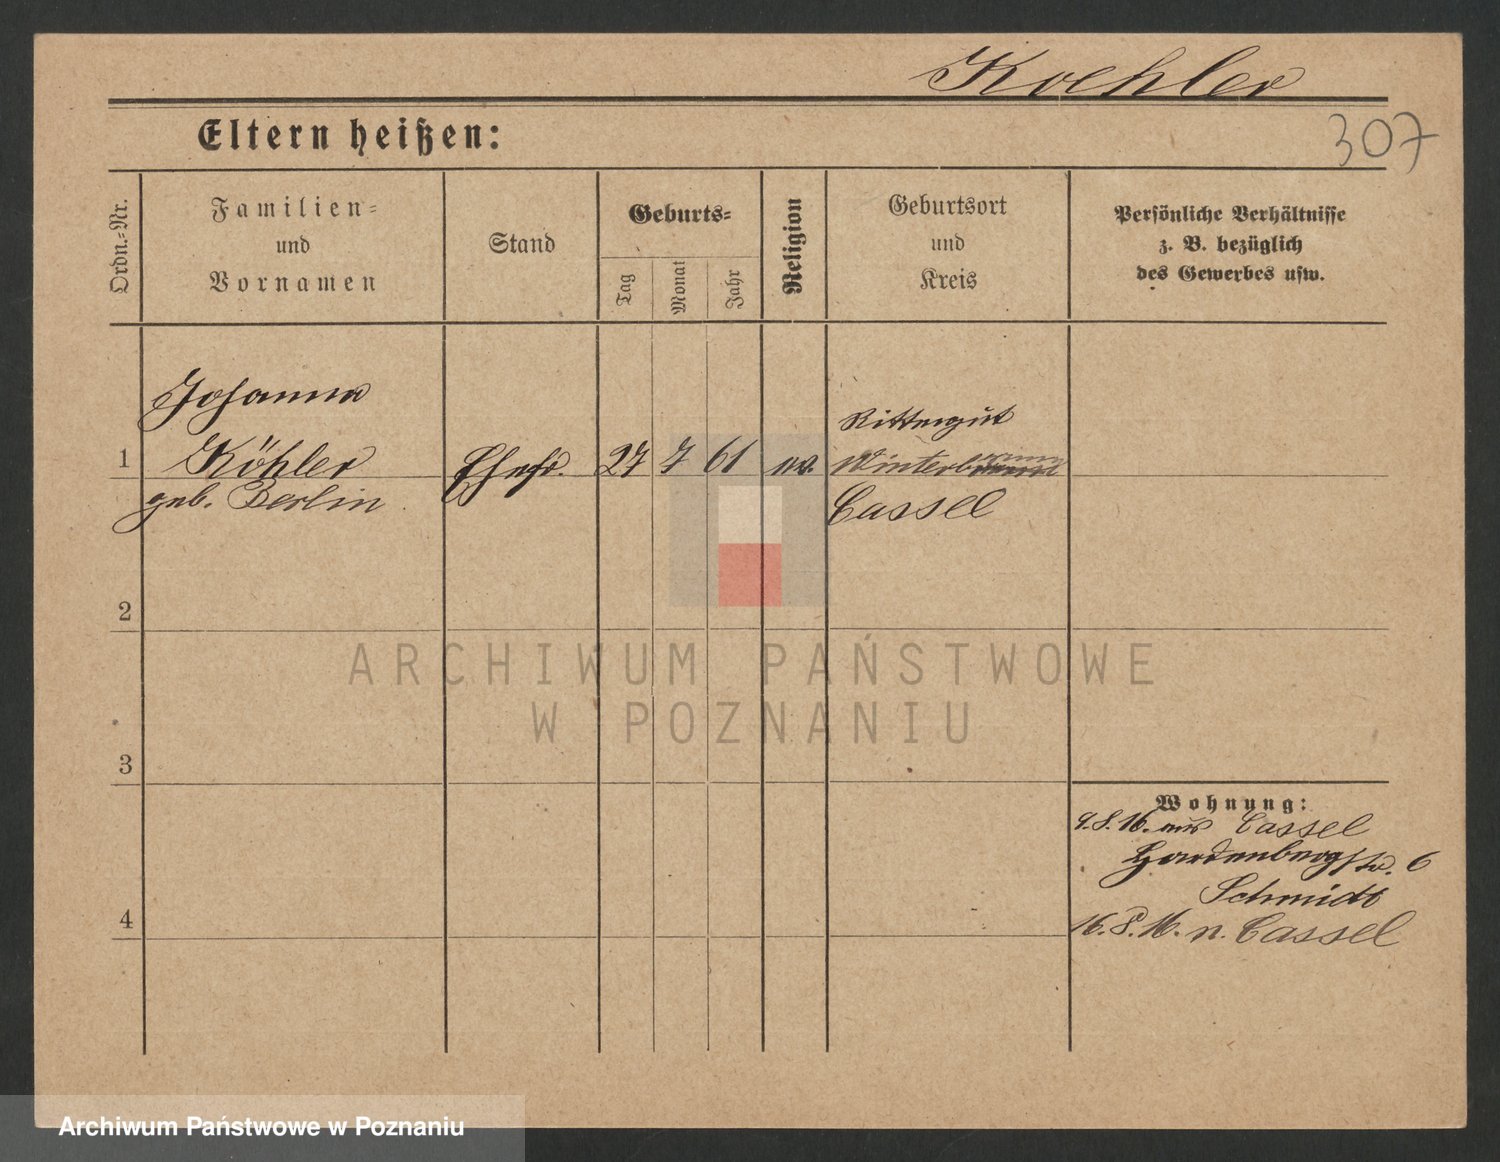 Koehler
Eltern heißen:
307
Ordn.-Nr.
Familien-
und
Vornamen
Stand
Geburts-
Tag
Monat
Jahr
Religion
Geburtsort
und
Kreis
Persönliche Verhältnisse
z. B. bezüglich
des Gewerbes usw.
Johanna
Rittergut
1 Köhler Ehefr. 27 7 61 ev.
geb. Berlin Cassel
2
ARCHIWUM PAŃSTWOWE
W POZNANIU
3
Wohnung:
9.8.16. aus Cassel
Hardenbergstr. 6
Schmidt
4
16.8.16. n. Cassel
Archiwum Państwowe w Poznaniu